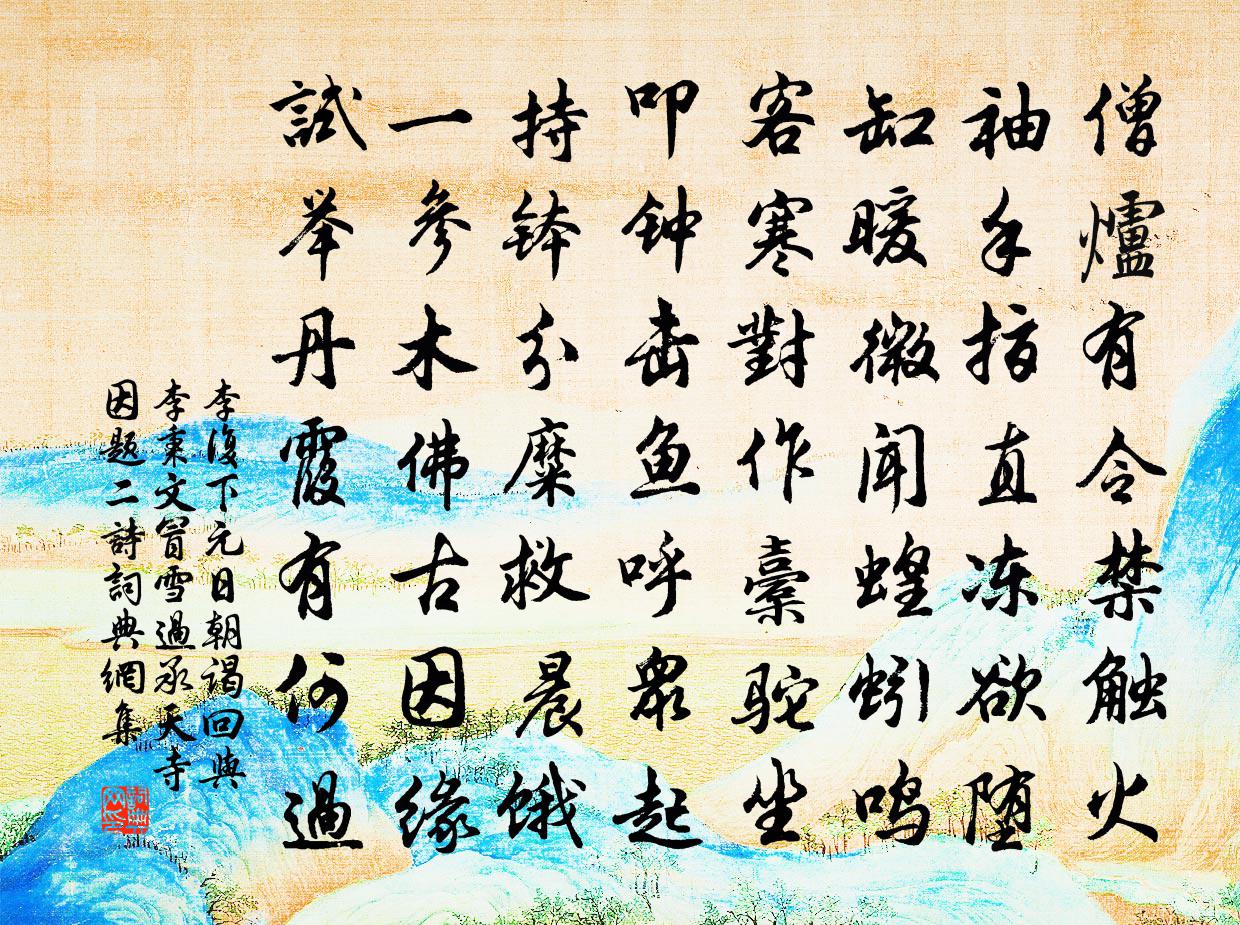 僧爐有令禁触火
袖手指直冻欲堕
缸暖微闻蝗蚓鸣
客寒對作橐驼坐
叩钟击鱼呼眾起
持钵分糜救晨饿
一参木佛古因緣
試举丹霞有何過
李復下元日朝谒回與
李秉文冒雪過承天寺
因题二詩詞典網集